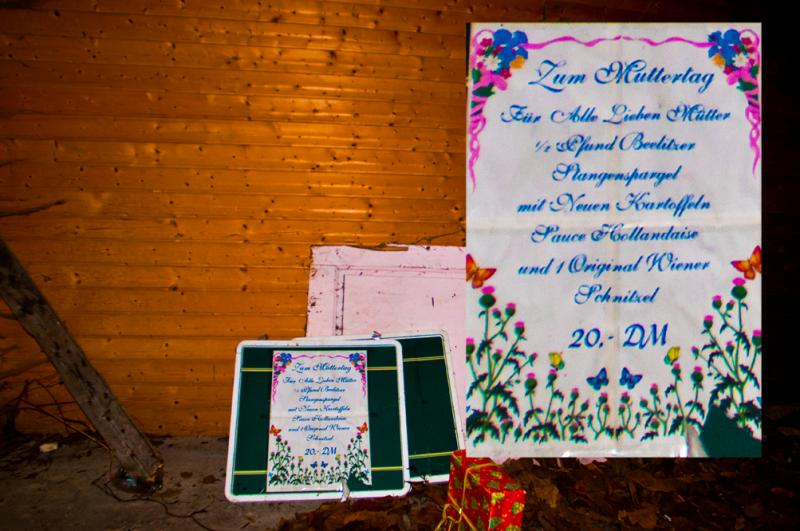 Zum Muttertag
Für Alle Lieben Mütter
½ Pfund Beelitzer
Stangenspargel
mit Neuen Kartoffeln
Sauce Hollandaise
und 1 Original Wiener
Schnitzel
20,- DM
Zum Muttertag
Für Alle Lieben Mütter
½ Pfund Beelitzer
Stangenspargel
mit Neuen Kartoffeln
Sauce Hollandaise
und 1 Original Wiener
Schnitzel
20,- DM